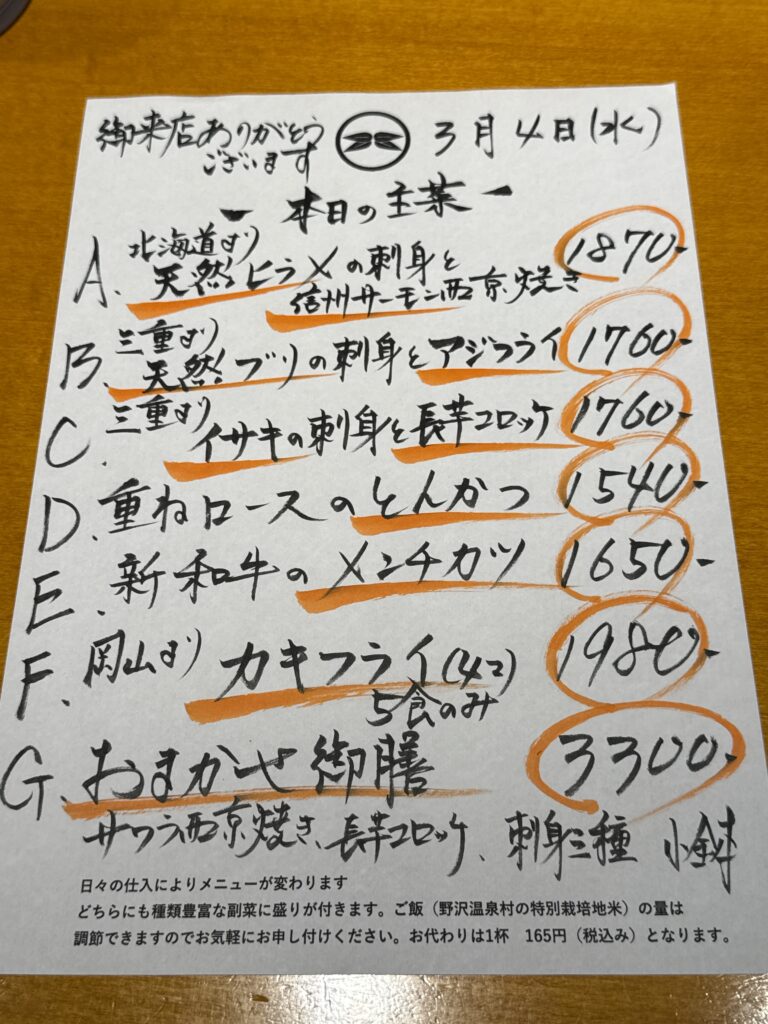 御来店ありがとう
ございます
3月4日(水)
- 本日の主菜 -
A. 北海道より
天然ヒラメの刺身と
信州サーモン西京焼き 1870-
B. 三重より
天然ブリの刺身とアジフライ 1760-
C. 三重より
イサキの刺身と長芋コロッケ 1760-
D. 重ねロースのとんかつ 1540-
E. 新和牛のメンチカツ 1650-
F. 岡山より カキフライ(4コ) 1980-
5食のみ
G. おまかせ御膳 3300-
サワラ西京焼き、長芋コロッケ、刺身三種 小鉢
日々の仕入によりメニューが変わります
どちらにも種類豊富な副菜に盛りが付きます。ご飯（野沢温泉村の特別栽培地米）の量は
調節できますのでお気軽にお申し付けください。お代わりは1杯 165円（税込み）となります。